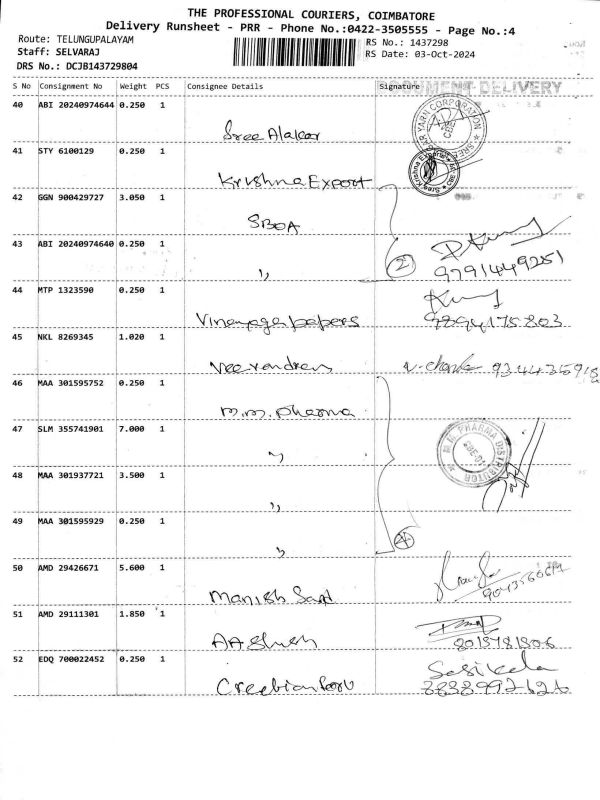 THE PROFESSIONAL COURIERS, COIMBATORE
Delivery Runsheet - PRR - Phone No.:0422-3505555 - Page No.:4
Route: TELUNGUPALAYAM
RS No.: 1437298
Staff: SELVARAJ
RS Date: 03-Oct-2024
DRS No.: DCJB143729804
DOCUMENT DELIVERY
S No Consignment No Weight PCS Consignee Details Signature
40 ABI 20240974644 0.250 1
41 STY 6100129 0.250 1
Krishna Export
42 GGN 900429727 3.050 1
SBOA
43 ABI 20240974640 0.250 1
" 2 9791449251
44 MTP 1323590 0.250 1
Vinayaga papers 9894175803
45 NKL 8269345 1.020 1
46 MAA 301595752 0.250 1
M.M. Pharma
47 SLM 355741901 7.000 1
"
M.M. PHARMA DISTRIBUTOR
48 MAA 301937721 3.500 1
"
49 MAA 301595929 0.250 1
" 4
50 AMD 29426671 5.600 1
Manish
51 AMD 29111301 1.850 1
52 EDQ 700022452 0.250 1
Sasikala